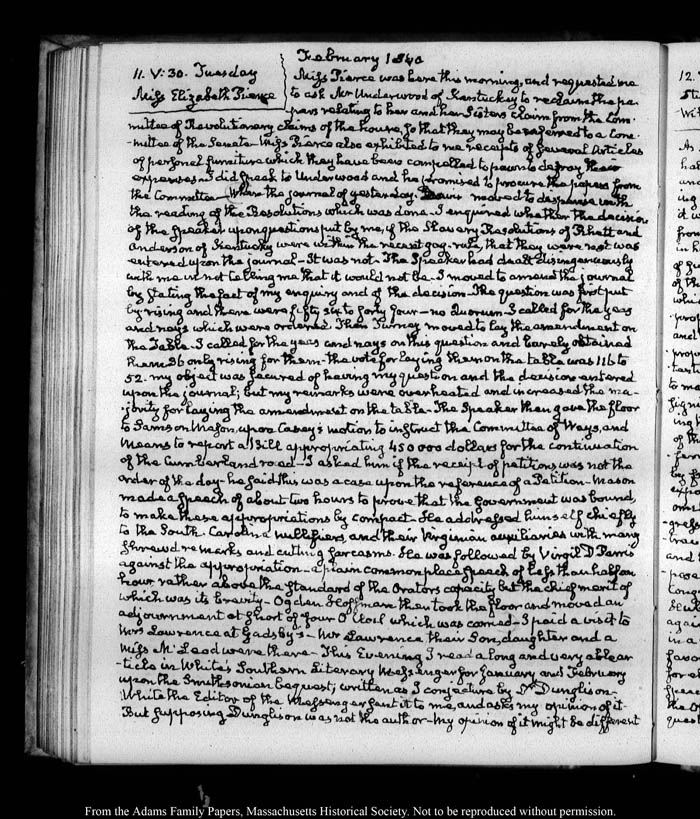 February 1840
11. V:30. Tuesday
Miss Elizabeth Pierce
Miss Pierce was here this morning, and requested me
to ask Mr Underwood of Kentucky to reclaim the pa-
pers relating to her and her Sisters claim from the Com-
mittee of Revolutionary claims of the house, so that they may be referred to a Com-
-mittee of the Senate. Miss Pierce also exhibited to me receipts of several Articles
of personal furniture which they have been compelled to pawn to defray their
expenses. I did speak to Underwood and he promised to procure the papers from
the Committee the journal of yesterday. moved to dispense with
the reading of the Resolutions which was done. I enquired whether the decision
of the Speaker upon questions put by me, if the Slavery Resolutions of Rhett and
Anderson of Kentucky were within the recent gag-rule, that they were not was
entered upon the journal - It was not. The Speaker had dealt disingenuously
with me in not telling me that it would not be. I moved to amend the journal
by stating the fact of my enquiry and of the decision. The question was first put
by rising and there were fifty six to forty four - no Quorum. I called for the yeas
and nays which were ordered. Then Turney moved to lay the amendment on
the Table. I called for the yeas and nays on this question and barely obtained
them 26 only rising for them. the vote for laying them on the table was 116 to
52. my object was secured of having my question and the decision entered
upon the journal; but my remarks were overheated and increased the ma-
-jority for laying the amendment on the table. The Speaker then gave the floor
to Samson Mason, upon Casey's motion to instruct the Committee of Ways, and
Means to report a Bill appropriating 450000 dollars for the continuation
of the Cumberland road - I asked him if the receipt of petitions was not the
order of the day - he said this was a case upon the reference of a Petition. Mason
made a speech of about two hours to prove that the Government was bound,
to make these appropriations by compact - He addressed himself chiefly
to the South Carolina nullifiers, and their Virginian auxiliaries with many
shrewd remarks and cutting sarcasms. He was followed by Virgil D Parris
against the appropriation - a plain common place speech of less than half an
hour rather above the standard of the Orators capacity but the chief merit of
which was its brevity - Ogden Hoffman then took the floor and moved an
adjournment at short of four O'Clock which was carried - I paid a visit to
Mrs Lawrence at Gadsby's - Mr Lawrence their Son, daughter and a
Miss McLeod were there - This Evening I read a long and very able ar-
-ticle in White's Southern Literary Messenger for January and February
upon the Smithsonian bequest; written as I conjecture by Dr Dunglison.
White the Editor of the Messenger sent it to me, and asks my opinion of it.
But supposing Dunglison was not the author - My opinion of it might be different
12.
From the Adams Family Papers, Massachusetts Historical Society. Not to be reproduced without permission.